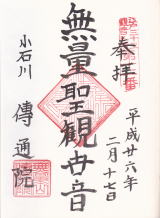 奉拝
平成廿六年
二月十七日
無量聖観世音
小石川
傳通院